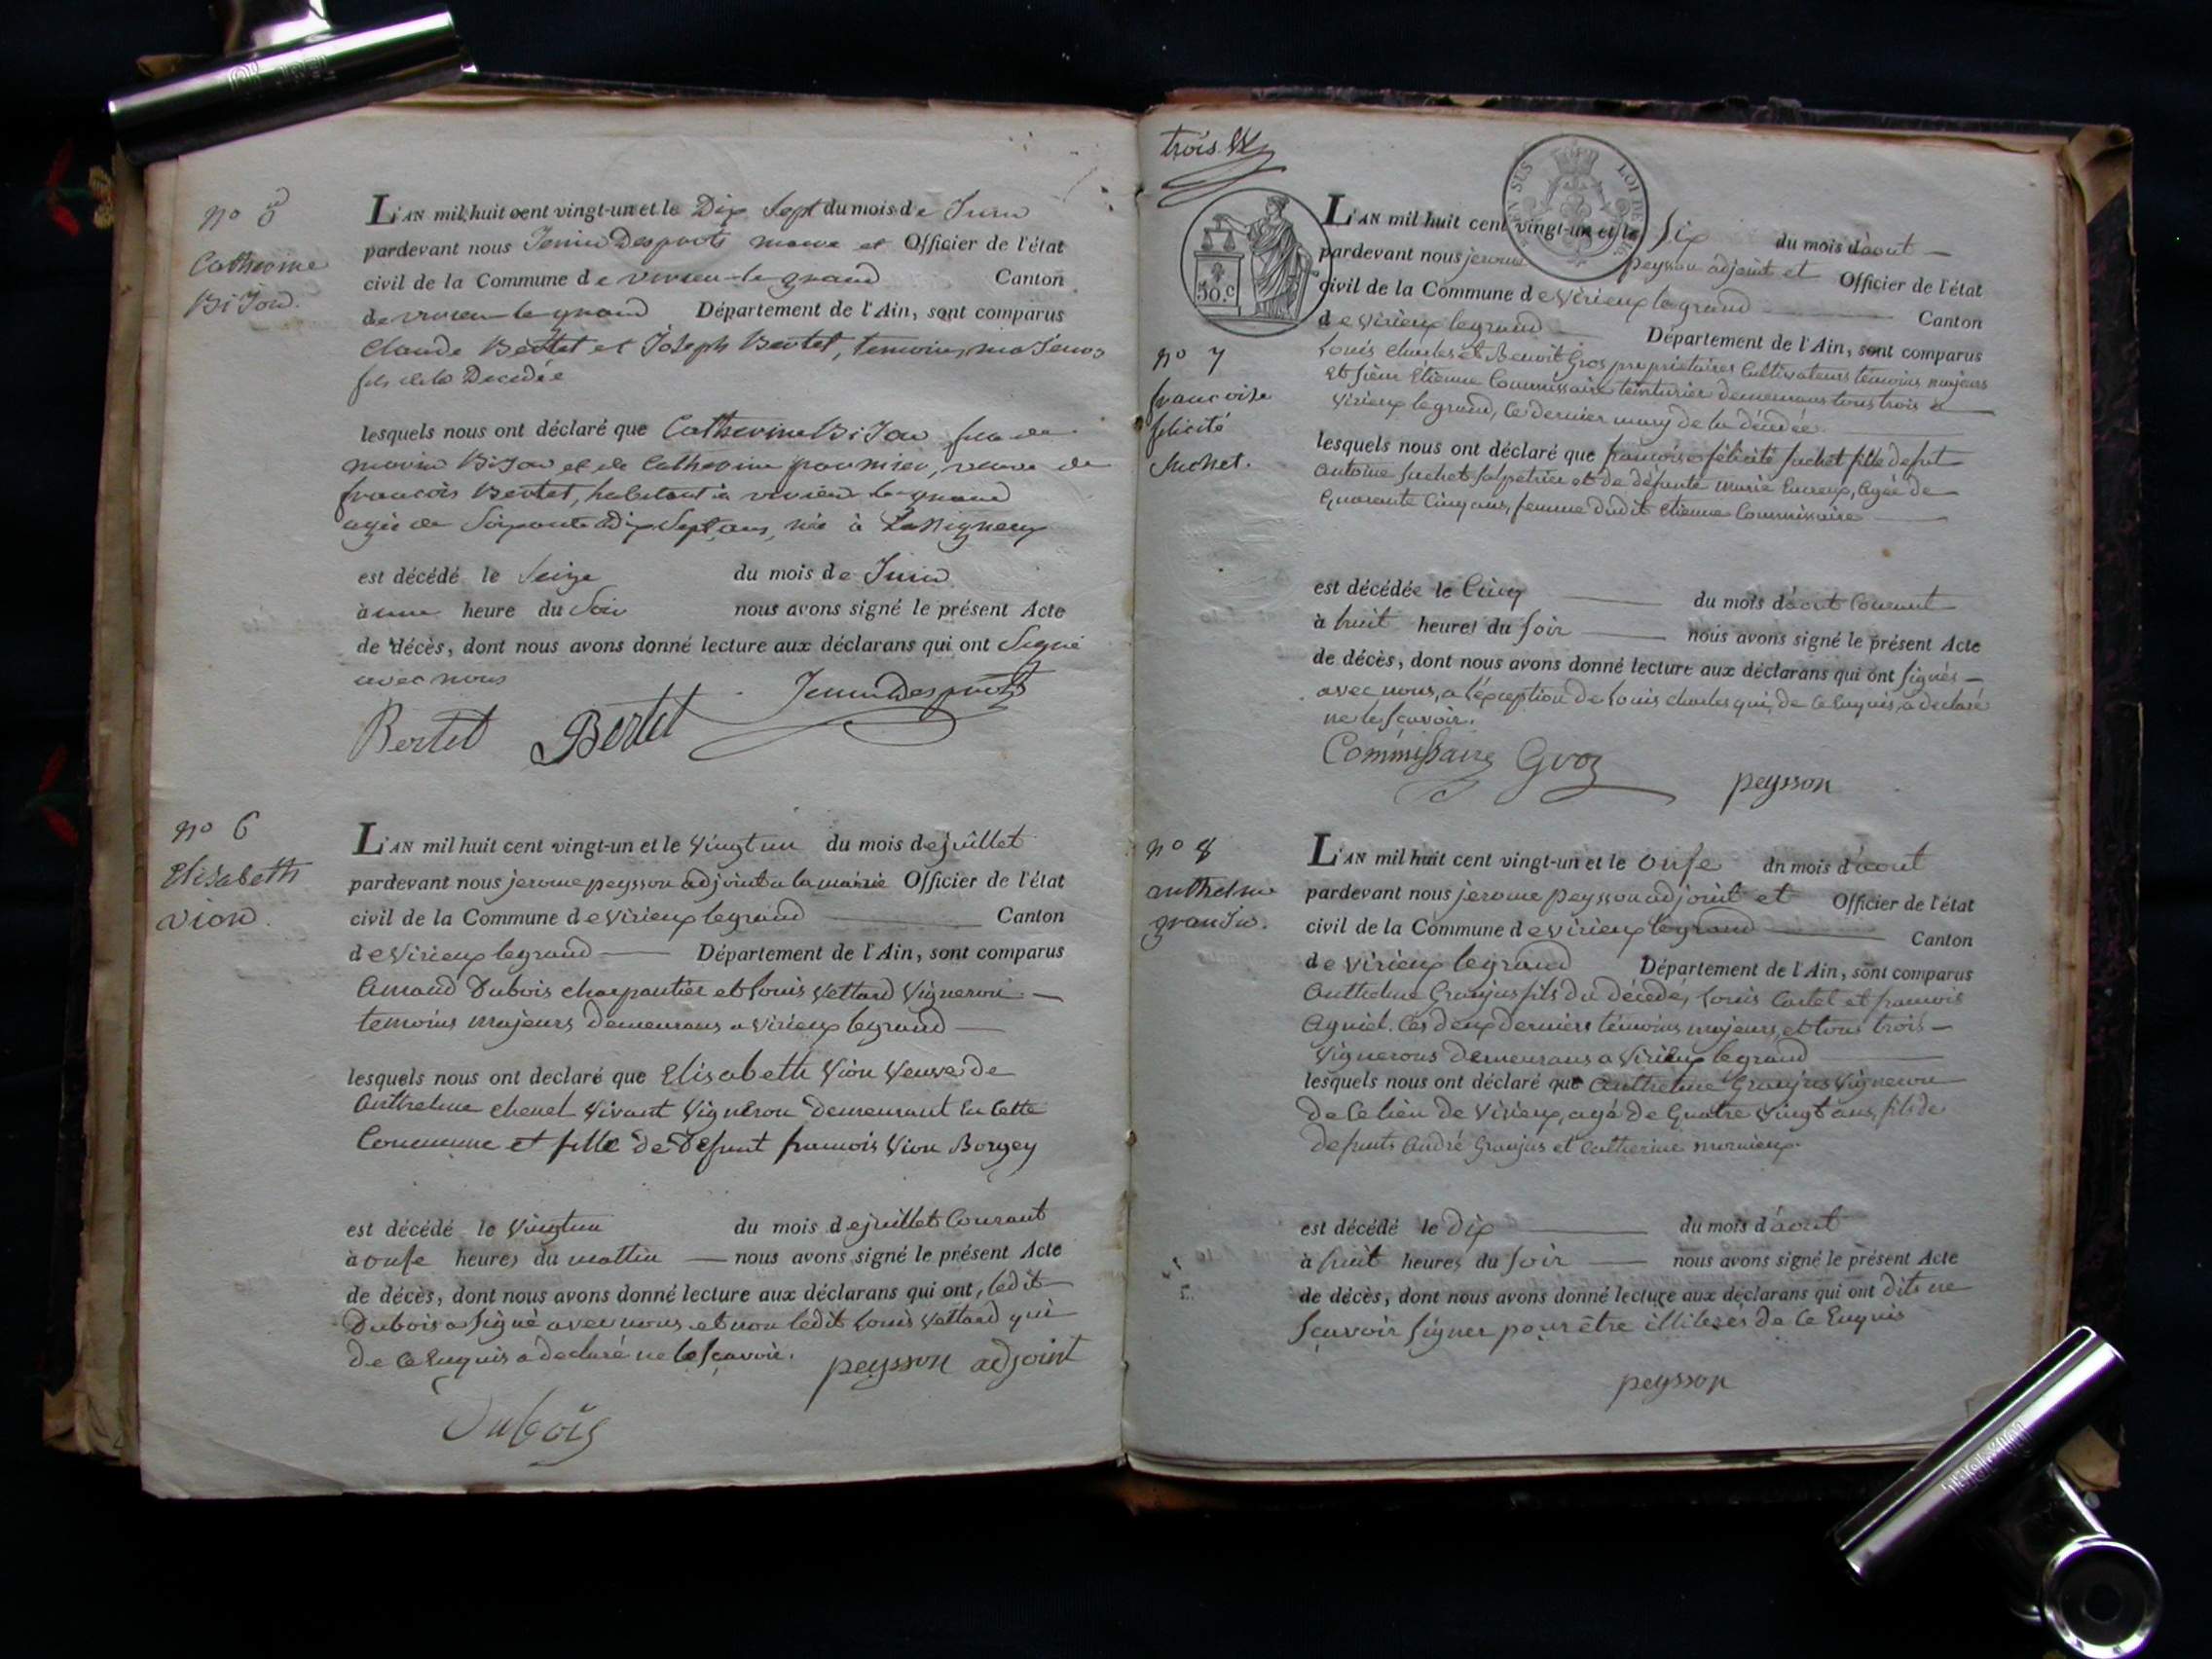 nº 5
Catherine
Bijou.
L'AN mil huit cent vingt-un et le Dix Sept du mois de Juin
pardevant nous Jenin Desprots maire et Officier de l'état
civil de la Commune de virieu-le-grand Canton
de virieu-le-grand Département de l'Ain, sont comparus
Claude Bertet et Joseph Bertet, temoins majeurs
fils de la Decedée
lesquels nous ont déclaré que Catherine Bijou fille de
et de Catherine fournier, veuve de
francois Bertet, habitant à virieu le grand
agée de Soixante Dix Sept ans, née à
est décédé le Seize du mois de Juin
à une heure du Soir nous avons signé le présent Acte
de décès, dont nous avons donné lecture aux déclarans qui ont Signé
avec nous
Bertet Bertet Jenin Desprots
nº 6
Elisabeth
vion.
L'AN mil huit cent vingt-un et le Vingt un du mois de juillet
pardevant nous jerome peysson adjoint a la mairie Officier de l'état
civil de la Commune de Virieux legrand Canton
de Virieux legrand Département de l'Ain, sont comparus
Amand Dubois charpantier et Louis Vettard Vigneron
temoins majeurs demeurans a Virieux legrand
lesquels nous ont declaré que Elisabeth Vion Veuve de
Anthelme chenel Vivant Vigneron demeurant en Cette
Commune et fille de Defunt francois Vion Borgey
est décédé le Vingt un du mois de juillet Courant
à onse heures du mattin nous avons signé le présent Acte
de décès, dont nous avons donné lecture aux déclarans qui ont, ledit
Dubois a Signé avec nous et non ledit Louis Vettard qui
de Ce Enquis a declaré ne le Sçavoir. peysson adjoint
Dubois
trois
SUS LOI DE
50.c
L'AN mil huit cent vingt-un et le Six du mois d'aout
pardevant nous jerome peysson adjoint et Officier de l'état
civil de la Commune de Virieux legrand Canton
de Virieux legrand Département de l'Ain, sont comparus
Louis charles et Benoit Gros propriétaires Cultivateurs témoins majeurs
et Sieur Etienne Commissaire teinturier demeurans tous trois a
Virieux legrand, Ce dernier mary de la décédée
nº 7
francoise
felicité
suchet.
lesquels nous ont déclaré que francoise félicité Suchet fille de fut
Antoine Suchet Salpetrier et de défunte Marie, agée de
Quarante Cinq ans, femme dudit Etienne Commissaire
est décédée le Cinq du mois d'aout Courant
à huit heures du Soir nous avons signé le présent Acte
de décès, dont nous avons donné lecture aux déclarans qui ont Signés
avec nous, a l'exception de Louis charles qui, de Ce Enquis, a declaré
ne le Sçavoir.
Commissaire Groz peysson
nº 8
anthelme
granju.
L'AN mil huit cent vingt-un et le onse du mois d'aout
pardevant nous jerome peysson adjoint et Officier de l'état
civil de la Commune de Virieux legrand Canton
de Virieux legrand Département de l'Ain, sont comparus
Anthelme Granjus fils du décédé, Louis Castel et francois
Ayniel. Ces deux derniers témoins majeurs, et tous trois
Vignerons demeurans a Virieux legrand
lesquels nous ont déclaré que Anthelme Granjus Vigneron
de Ce lieu de Virieux, agé de Quatre Vingt ans, fils de
defunts André Granjus et Catherine
est décédé le Dix du mois d'aout
à huit heures du Soir nous avons signé le présent Acte
de décès, dont nous avons donné lecture aux déclarans qui ont dits ne
Sçavoir Signer pour être illiterés de Ce Enquis
peysson